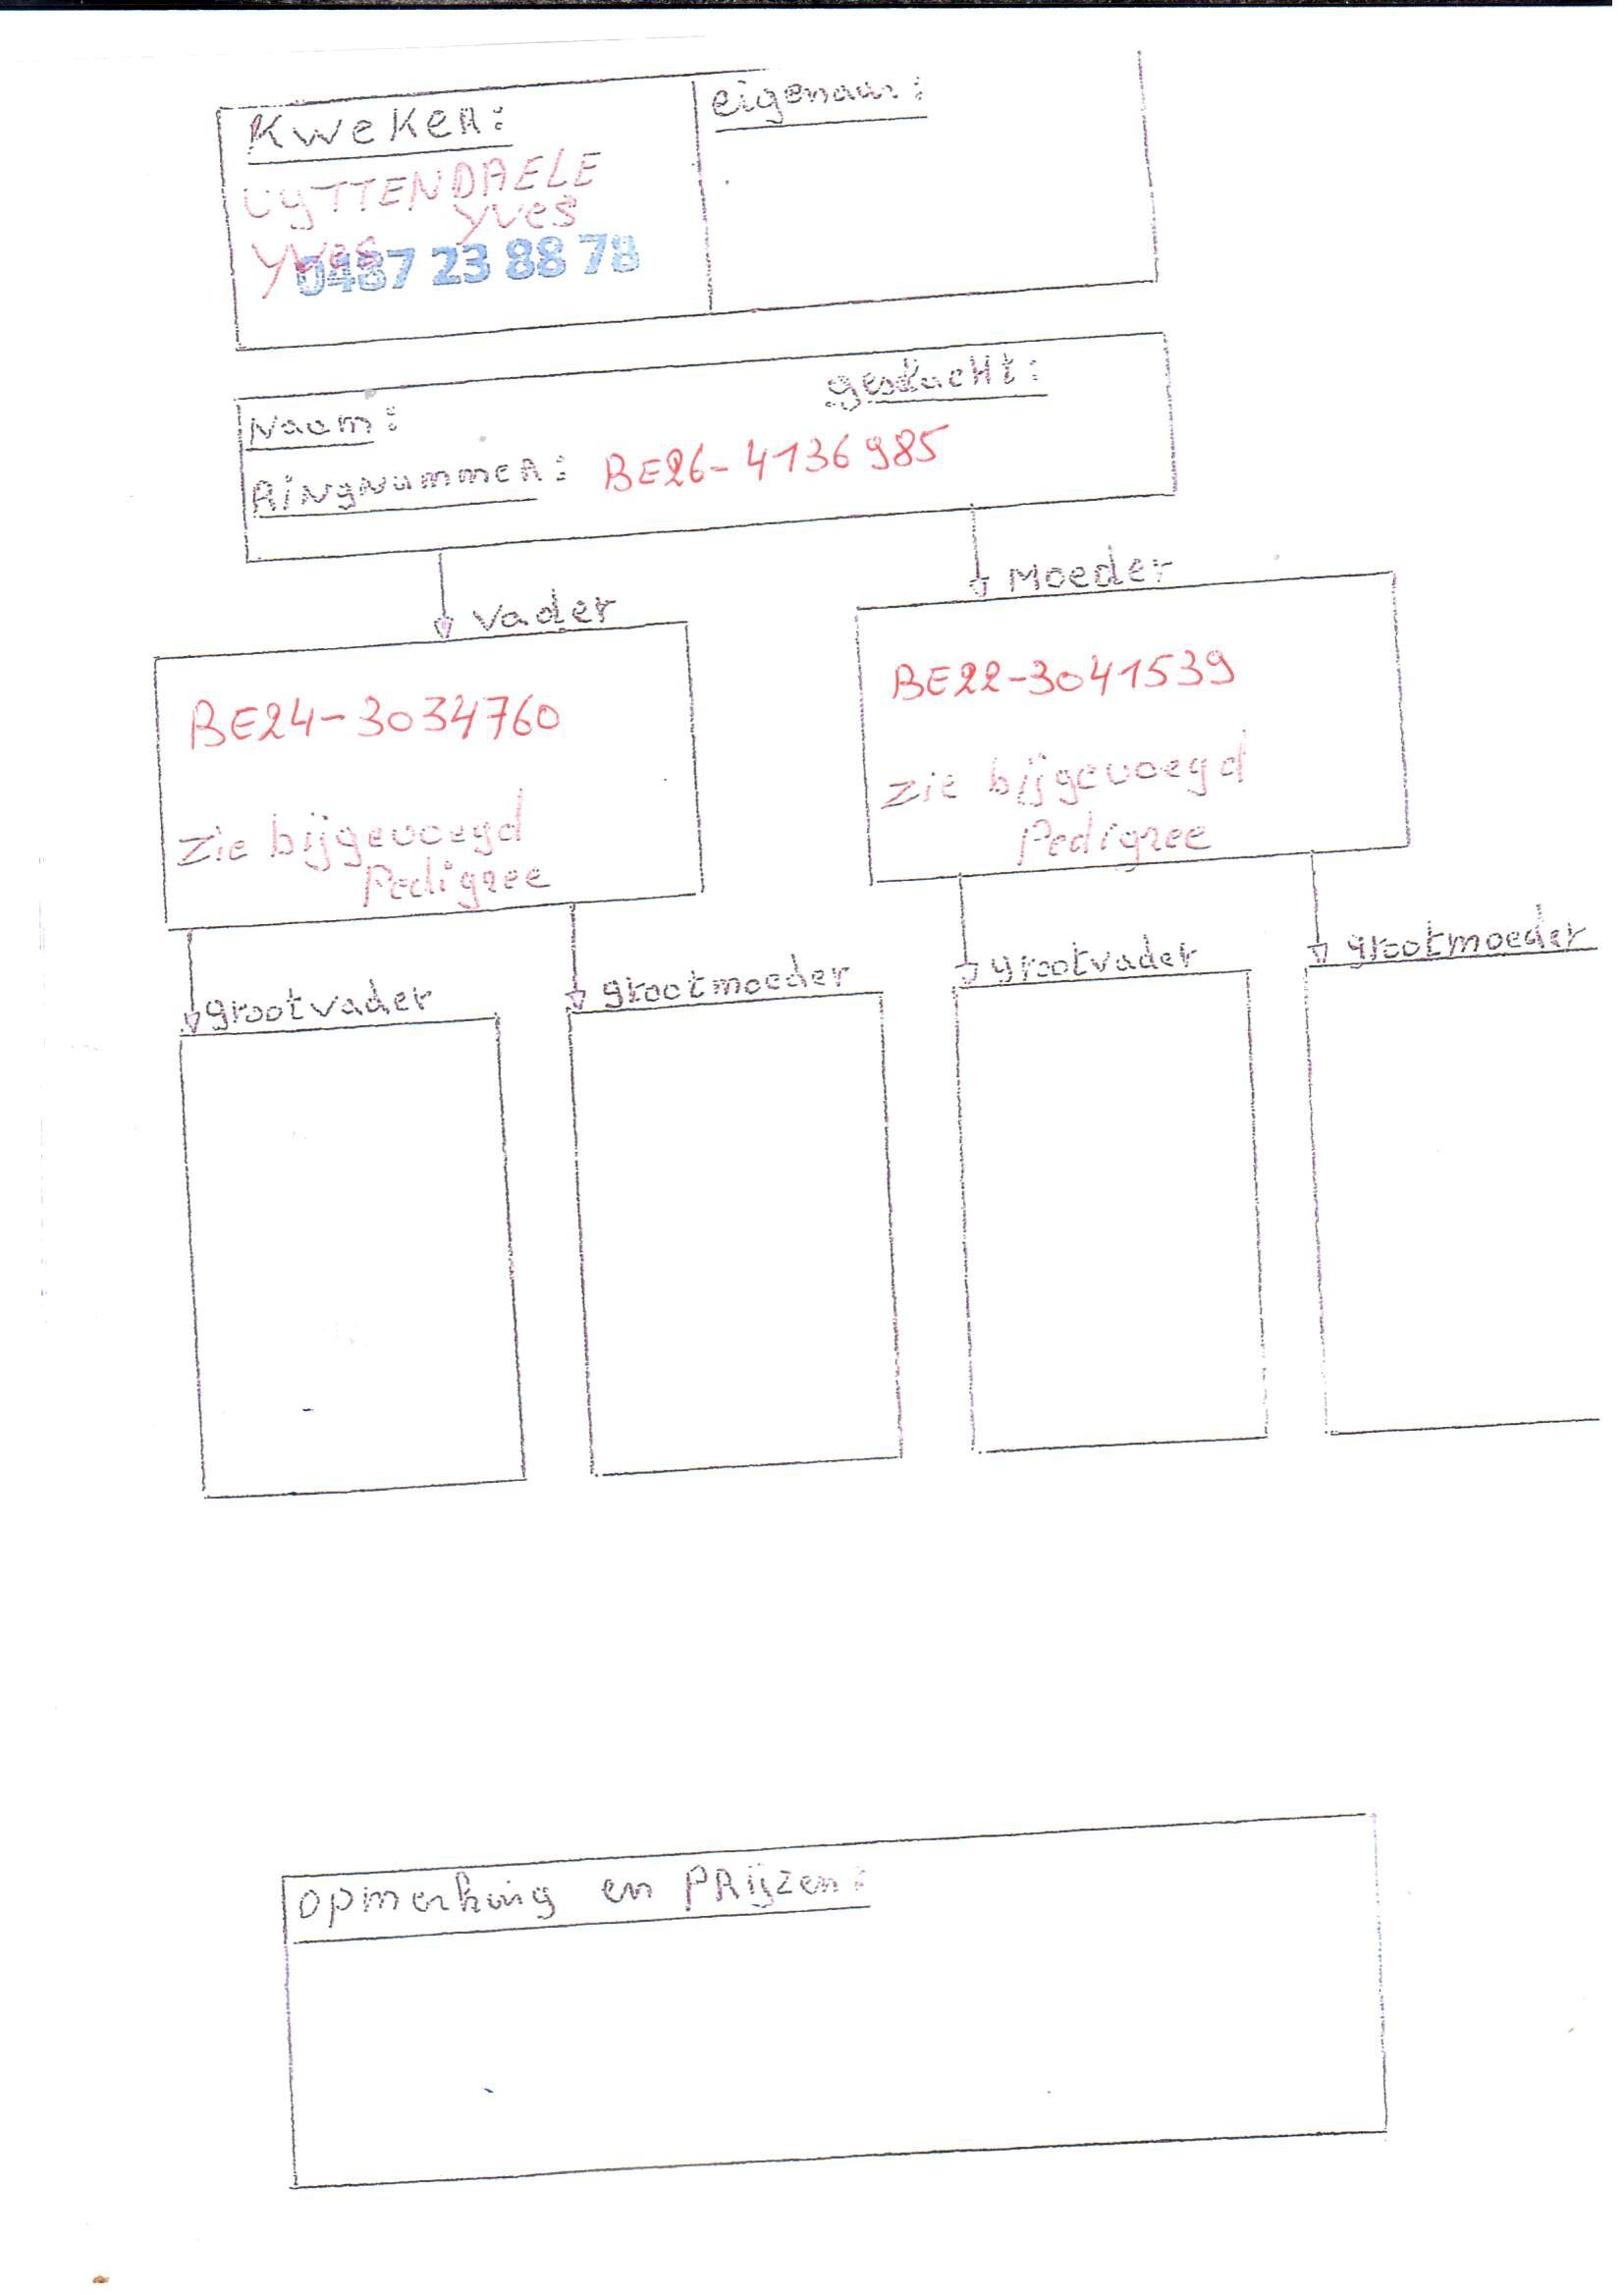 Kweker:
eigenaar:
UyTTENDAELE
Yves
Yves
0487 23 88 78
Naam:
geslacht:
Ringnummer: BE26-4136985
vader
Moeder
BE24-3034760
BE22-3041539
Zie bijgevoegd
Pedigree
Zie bijgevoegd
Pedigree
grootvader
grootmoeder
grootvader
grootmoeder
opmerking en PRijzen: